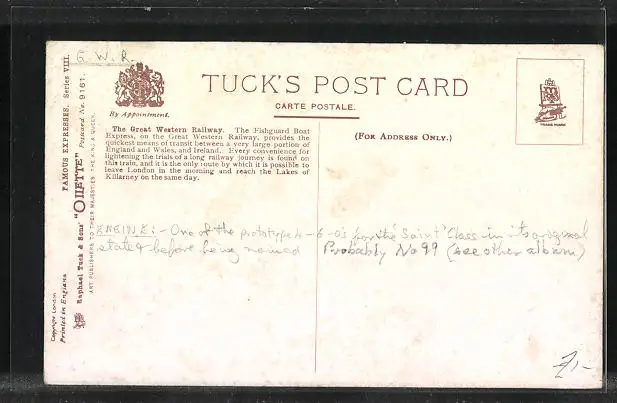 G. W. R.
TUCK'S POST CARD
CARTE POSTALE.
By Appointment.
(FOR ADDRESS ONLY.)
TRADE MARK
The Great Western Railway. The Fishguard Boat
Express, on the Great Western Railway, provides the
quickest means of transit between a very large portion of
England and Wales, and Ireland. Every convenience for
lightening the trials of a long railway journey is found on
this train, and it is the only route by which it is possible to
leave London in the morning and reach the Lakes of
Killarney on the same day.
ENGINE:- One of the prototype 4-6-0's for the 'Saint' Class in its original
state & before being named Probably No 99 (see other album)
FAMOUS EXPRESSES. Series VIII.
Raphael Tuck & Sons' "OILETTE" Postcard No. 9161.
ART PUBLISHERS TO THEIR MAJESTIES THE KING & QUEEN.
Copyright London
Printed in England